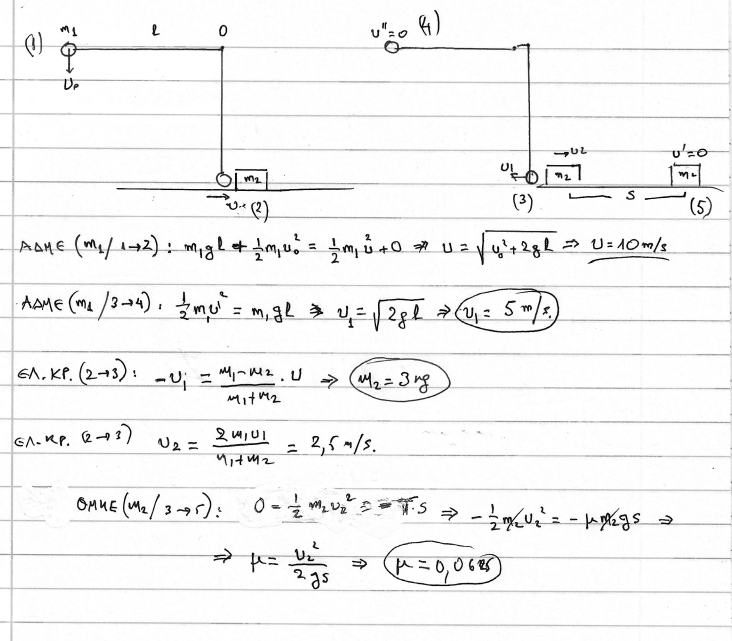 (1) m₁ l 0 υ''=0 (4)
υ₀
→υ2 υ'=0
m₂ υ1 m₂ m₂
→ (2) (3) S (5)
ΑΔΜΕ (m₁/1→2): m₁gl + ½m₁υ₀² = ½m₁υ²+0 ⇒ υ = √(υ₀²+2gl) ⇒ υ=10 m/s
ΑΔΜΕ (m₁/3→4): ½m₁υ₁² = m₁gl ⇒ υ₁=√(2gl) ⇒ υ₁ = 5 m/s.
ΕΛ.ΚΡ. (2→3): -υ₁ = (m₁-m₂)/(m₁+m₂) · υ ⇒ m₂=3kg
ΕΛ.ΚΡ. (2→3) υ₂ = 2m₁υ1/(m₁+m₂) = 2,5 m/s.
ΘΜΚΕ (m₂/3→5): 0-½m₂υ₂² = -T·S ⇒ -½m₂υ₂² = -μm₂gs ⇒
⇒ μ= υ₂²/2gs ⇒ μ=0,0625